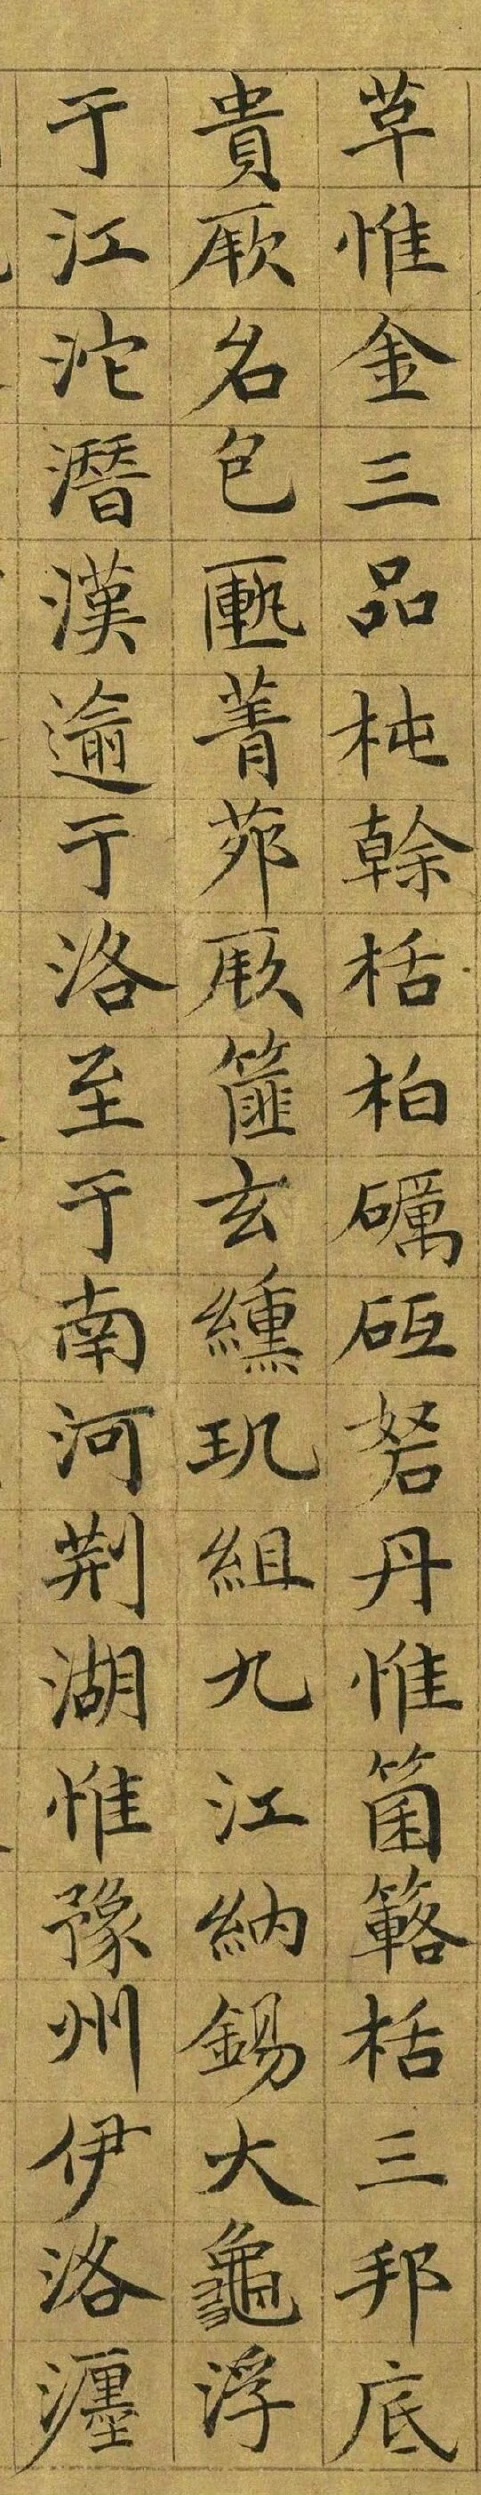 草惟金三品杶榦栝柏礪砥砮丹惟箘簵栝三邦底
貴厥名包匭菁茆厥篚玄纁玑組九江納錫大龜浮
于江沱潛漢逾于洛至于南河荆湖惟豫州伊洛瀍